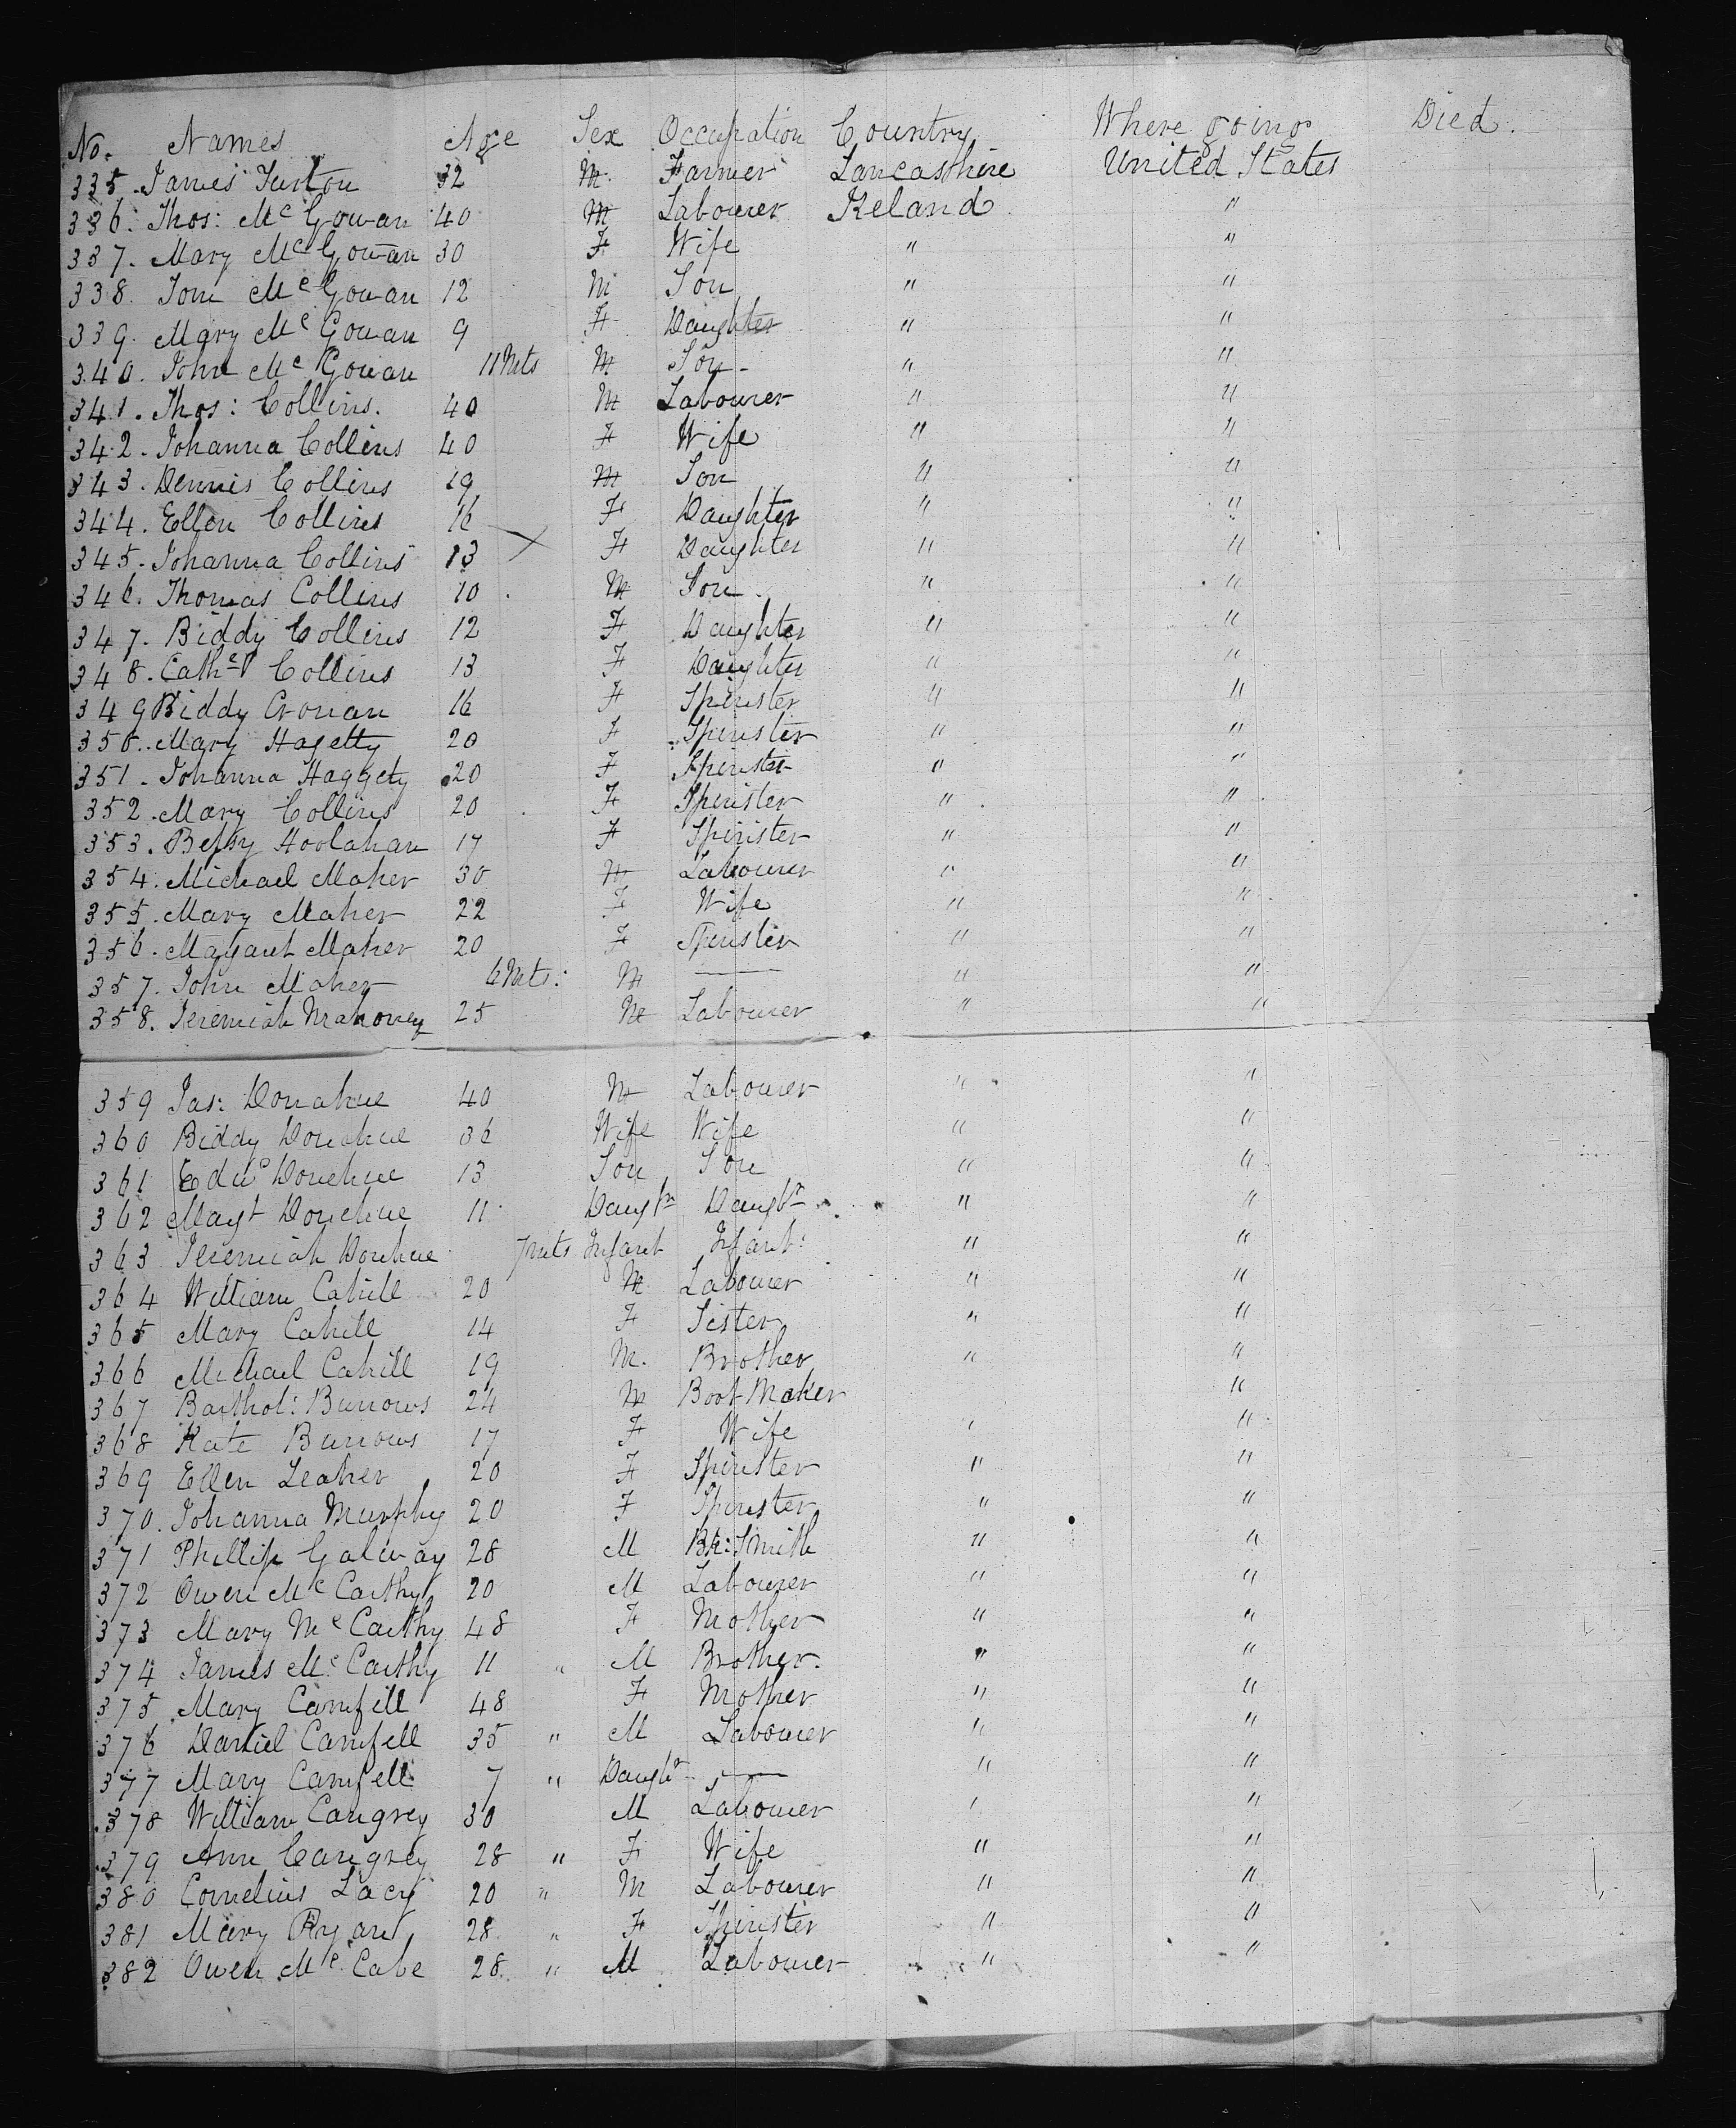 No. Names Age Sex Occupation Country Where going Died.
335. James Turton 32 M. Farmer Lancashire United States
336. Thos: McGowan 40 M Labourer Ireland "
337. Mary McGowan 30 F Wife " "
338. Tom McGowan 12 M Son " "
339. Mary McGowan 9 F Daughter " "
340. John McGowan 11 Mts M Son - " "
341. Thos: Collins. 40 M Labourer " "
342. Johanna Collins 40 F Wife " "
343. Dennis Collins 19 M Son " "
344. Ellen Collins 16 F Daughter " "
345. Johanna Collins 13 F Daughter " "
346. Thomas Collins 10 M Son " "
347. Biddy Collins 12 F Daughter " "
348. Cathe Collins 13 F Daughter " "
349 Biddy Cronan 16 F Spinster " "
350. Mary Hagetty 20 F Spinster " "
351. Johanna Haggety 20 F Spinster " "
352. Mary Collins 20 F Spinster " "
353. Betsy Hoolahan 17 F Spinster " "
354. Michael Maher 30 M Labourer " "
355. Mary Maher 22 F Wife " "
356. Magaret Maher 20 F Spinster " "
357. John Maher 6 Mts: M — " "
358. Jeremiah Mahoney 25 M Labourer " "
359 Jas: Donahue 40 M Labourer " "
360 Biddy Donahue 36 Wife Wife " "
361 Edwd Donehue 13 Son Son " "
362 Magt Donehue 11 Daughr Daughr " "
363 Jeremiah Donhue 7 mts Infant Infant: " "
364 William Cahill 20 M Labourer " "
365 Mary Cahill 14 F Sister " "
366 Michael Cahill 19 M. Brother " "
367 Barthol: Burrows 24 M Boot Maker "
368 Kate Burrows 17 F Wife " "
369 Ellen Leaher 20 F Spinster " "
370. Johanna Murphy 20 F Spinster " "
371 Phillip Galway 28 M Bk: Smith " "
372 Owen McCarthy 20 M Labourer " "
373 Mary McCarthy 48 F Mother " "
374 James McCarthy 11 " M Brother. " "
375 Mary Camfill 48 F Mother " "
376 Daniel Camfell 35 " M Labourer " "
377 Mary Camfell 7 " Daughr — " "
378 William Cangrey 30 M Labourer " "
379 Ann Cangrey 28 " F Wife " "
380 Cornelius Lacy 20 " M Labourer " "
381 Mary Ryan 28 " F Spinster " "
382 Owen McCabe 28 " M Labourer " "